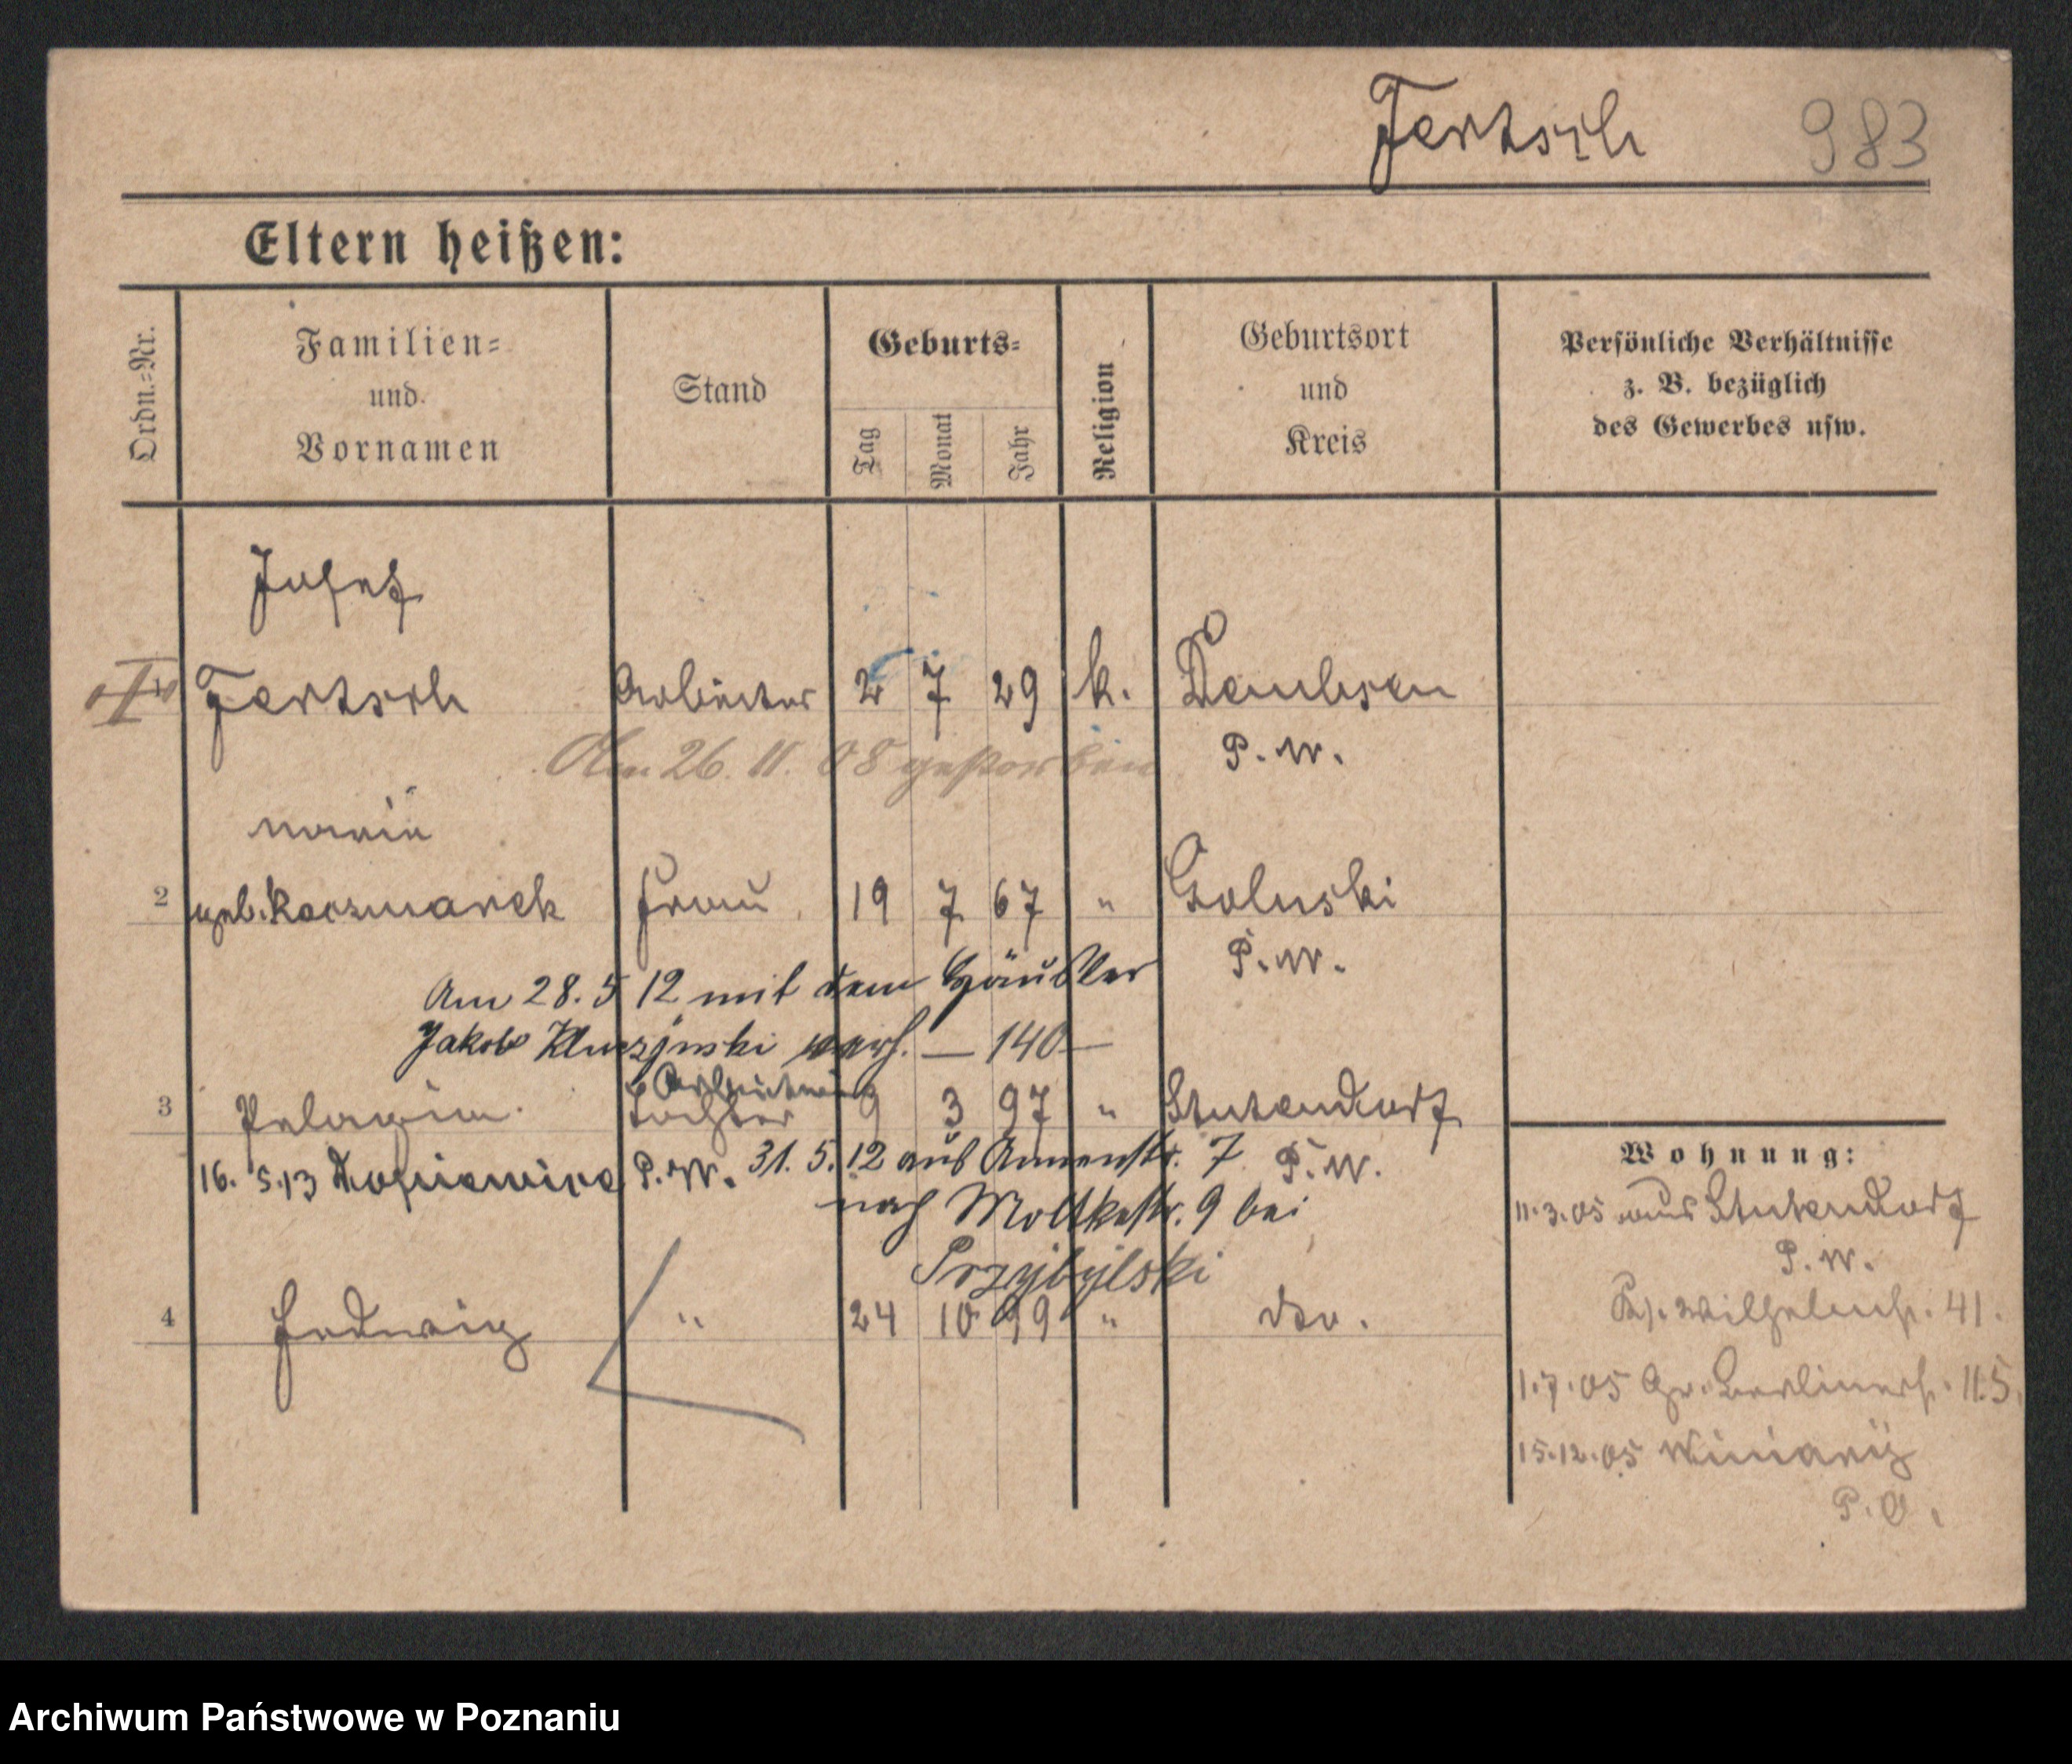 Fertsch 983
Eltern heißen:
Ordn.=Nr.
Familien=
und
Vornamen
Stand
Geburts=
Tag
Monat
Jahr
Religion
Geburtsort
und
Kreis
Persönliche Verhältnisse
z. B. bezüglich
des Gewerbes usw.
Josef
Fertsch Arbeiter 2 7 29 k. Dembsen
P. W.
Am 26. 11. 08 gestorben
Marie
2 geb. Kaczmarek Frau 19 7 67 " Goluski
P. W.
Am 28. 5 12 mit dem Häusler
Jakob Kluczynski verh. — 140 —
Arbeiterin
3 Pelagia Tochter 9 3 97 " Stutendorf
P. W.
16. 5.13 P. W. 31. 5. 12 aus Annenstr. 7
nach Moltkestr. 9 bei
Przybylski
4 Hedwig " 24 10 99 " do.
Wohnung:
11.3.05 aus Stutendorf
P. W.
Wilhelmstr. 41.
1.7.05 Gr. Berlinerstr. 115.
15.12.05 Winiary
P. O.
Archiwum Państwowe w Poznaniu